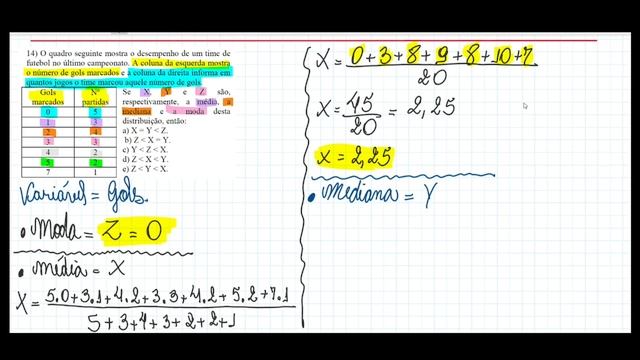 14) O quadro seguinte mostra o desempenho de um time de
futebol no último campeonato. A coluna da esquerda mostra
o número de gols marcados e a coluna da direita informa em
quantos jogos o time marcou aquele número de gols.
Gols marcados Nº partidas
0 5
1 3
2 4
3 3
4 2
5 2
7 1
Se X, Y e Z são,
respectivamente, a média, a
mediana e a moda desta
distribuição, então:
a) X = Y < Z.
b) Z < X = Y.
c) Y < Z < X.
d) Z < X < Y.
e) Z < Y < X.
Variável = Gols.
• Moda = Z = 0
• Média = X
X = 5.0+3.1+4.2+3.3+4.2+5.2+7.1
5+3+4+3+2+2+1
X = 0+3+8+9+8+10+7
20
X = 45/20 = 2,25
X = 2,25
• Mediana = Y